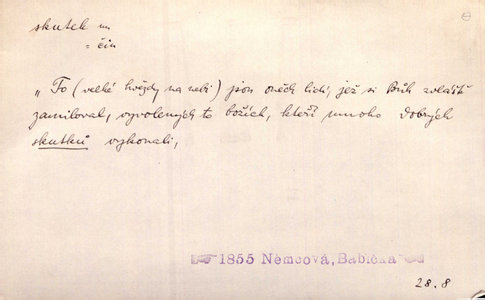 skutek m
= čin
„To (velké hvězdy na nebi) jsou oněch lidí, jež si Bůh zvláště
zamiloval, vyvolených to božích, kteří mnoho dobrých
skutků vykonali,
1855 Němcová, Babička
28.8